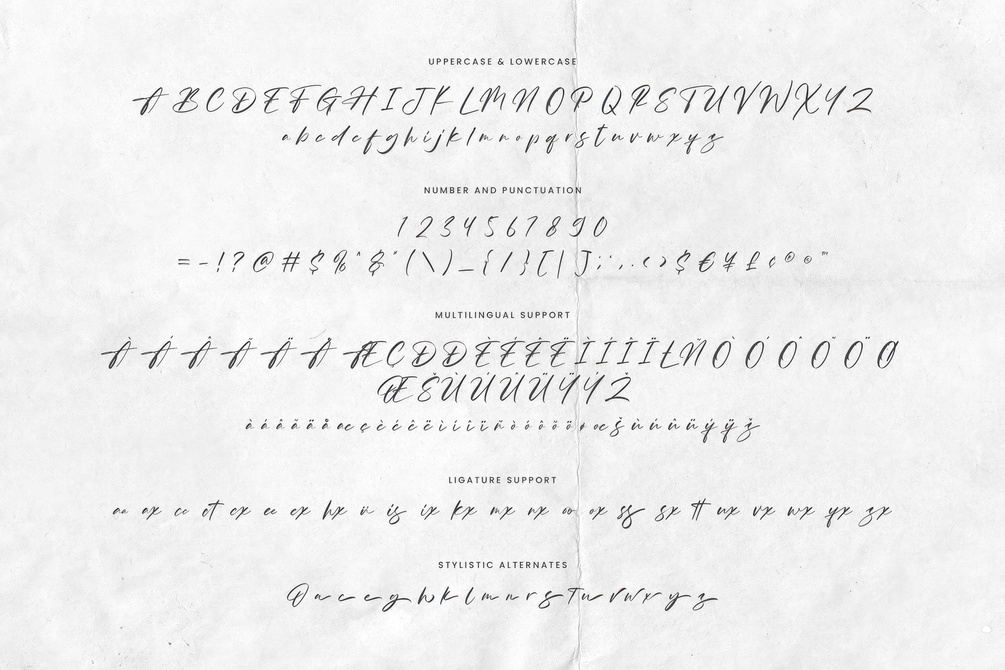 UPPERCASE & LOWERCASE
A B C D E F G H I J K L M N O P Q R S T U V W X Y Z
a b c d e f g h i j k l m n o p q r s t u v w x y z
NUMBER AND PUNCTUATION
1 2 3 4 5 6 7 8 9 0
= - ! ? @ # $ % ^ & * ( \ ) _ { / } [ | ] ; : ' , . < > $ € ¥ £ ¢ © ® ™
MULTILINGUAL SUPPORT
À Á Â Ã Ä Å Æ Ç D Đ È É Ê Ë Ì Í Î Ï Ł Ñ Ò Ó Ô Õ Ö Ø
Œ Š Ù Ú Û Ü Ý Ÿ Ž
à á â ã ä å æ ç è é ê ë ì í î ï ñ ò ó ô õ ö ø œ š ù ú û ü ý ÿ ž
LIGATURE SUPPORT
aa ax cc ct cx ee ex hx ii is ix kx mx nx oo ox ss sx tt ux vx wx yx zx
STYLISTIC ALTERNATES
O a c e g h k l m n r s t u v w x y z